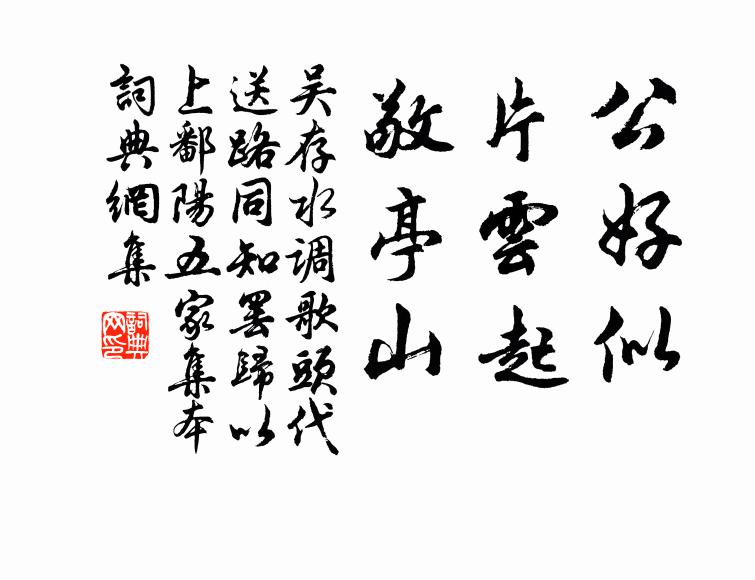 公好似
片雲起
敬亭山
吴存水调歌頭代
送路同知罢歸以
上鄱陽五家集本
詞典網集
詞典網印